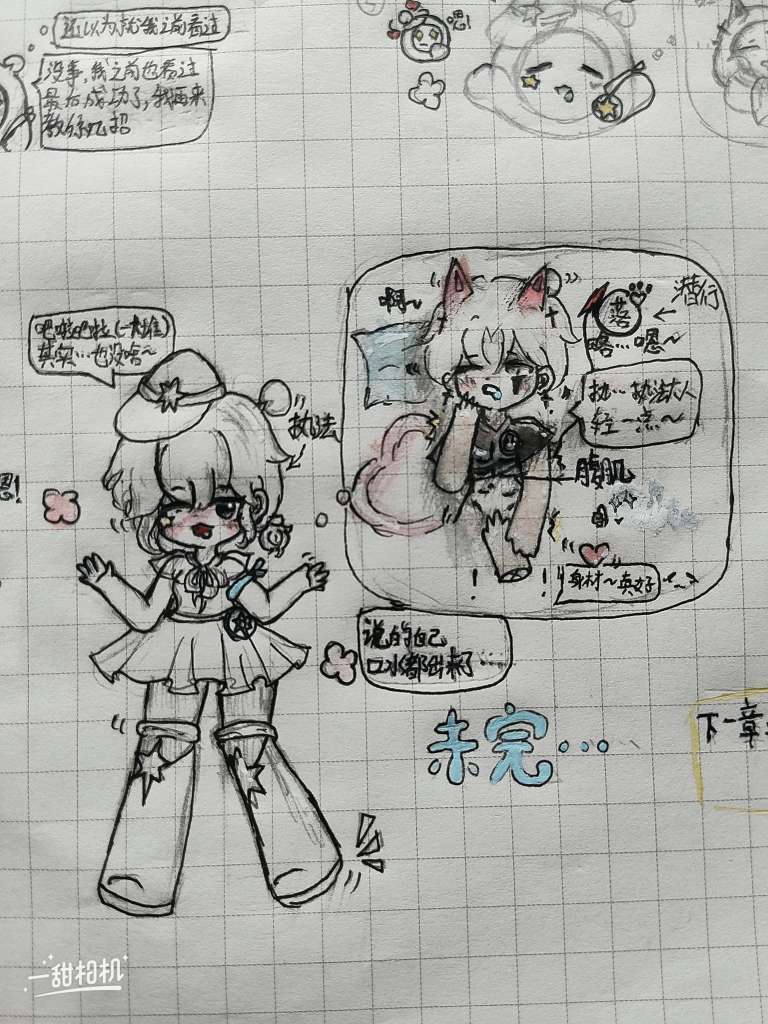 还以为就我之前看过
没事,我之前也看过
最后成功了,我再来
教你几招
嗯!
吧啦吧啦(一大堆)
其实…也没啥~
执法
嗯!
啊~
落
潜行
咯…嗯~
执…执法大人
轻一点~
腹肌
身材~真好
说的自己
口水都出来了…
未完…
下一章
一甜相机